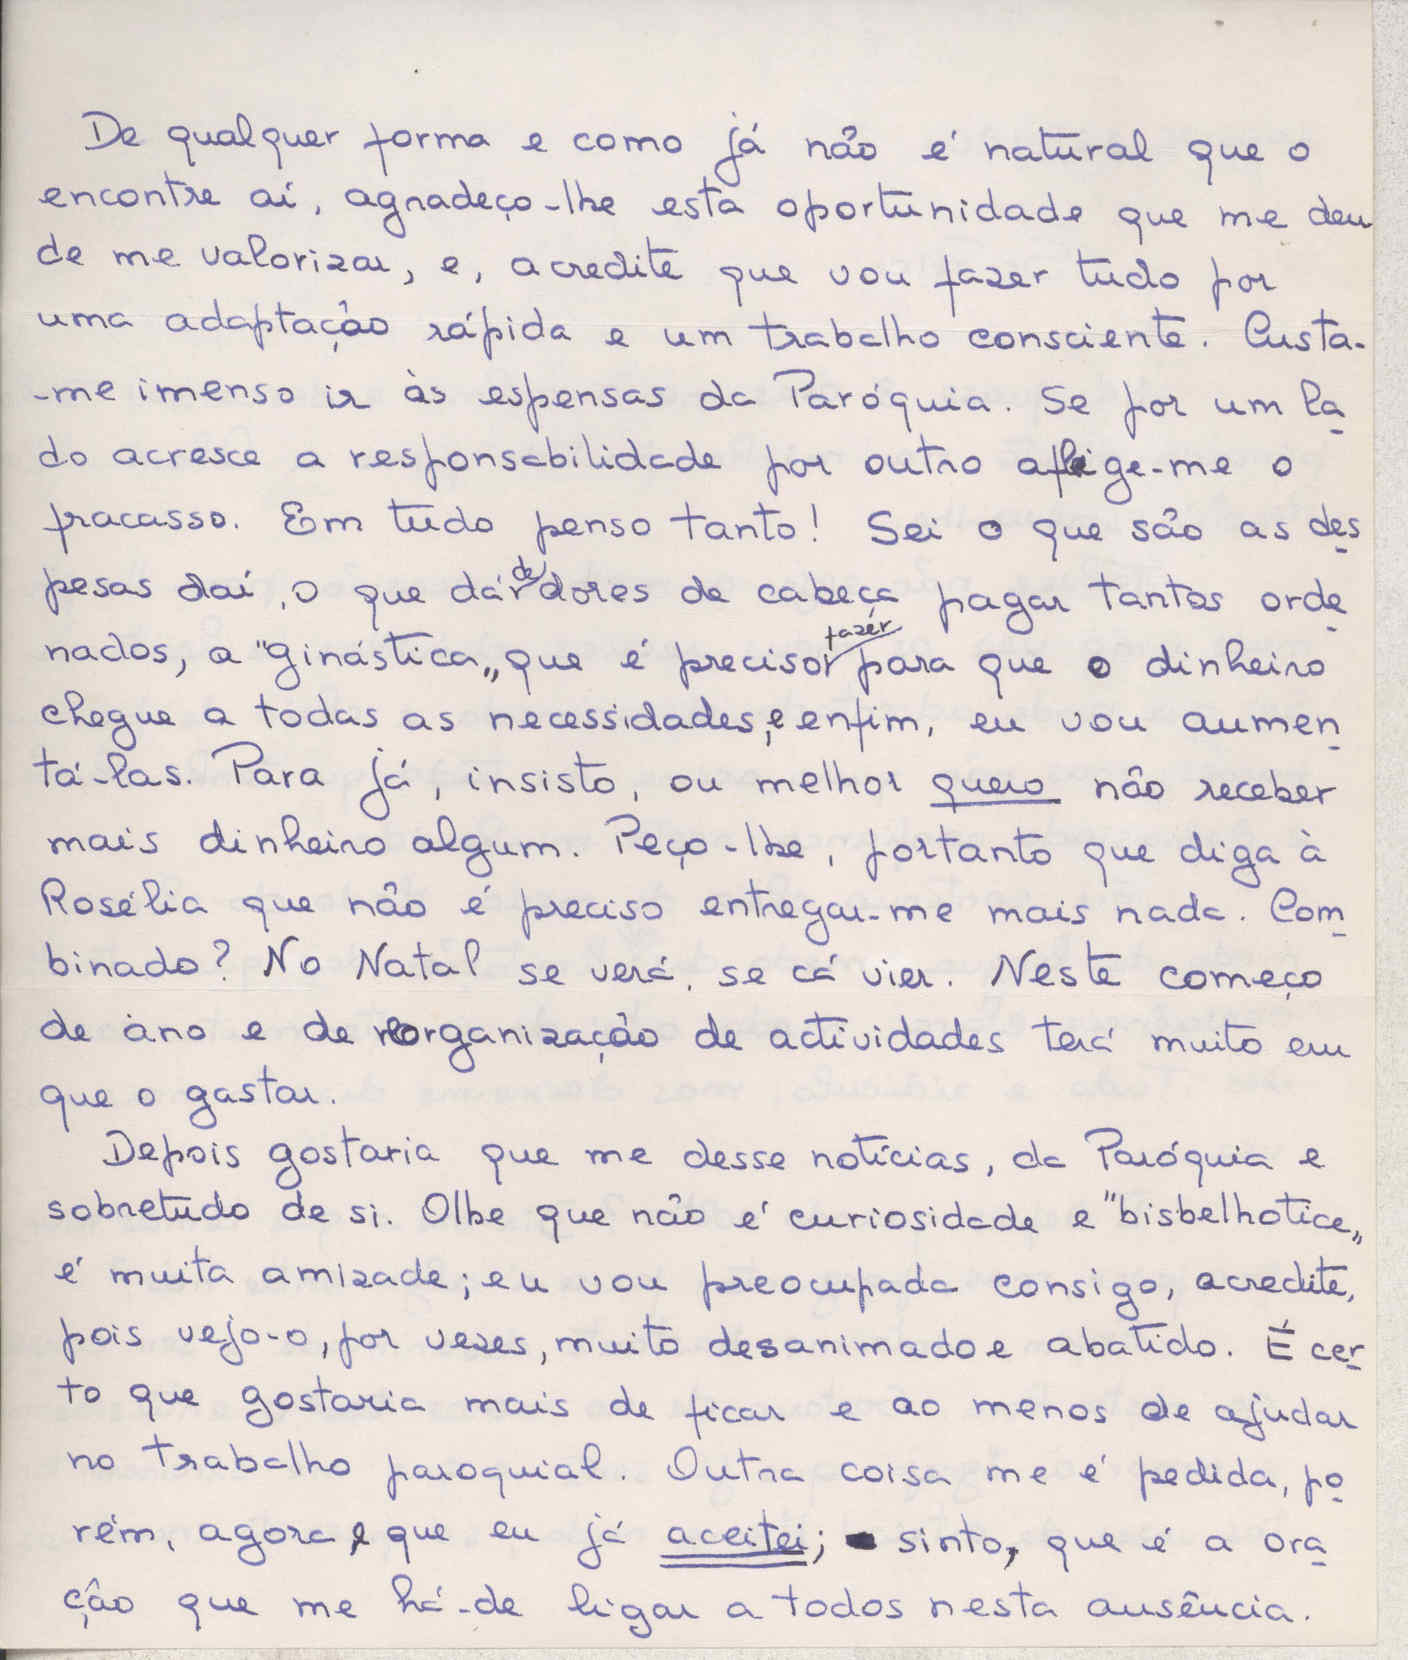 De qualquer forma e como já não é natural que o
encontre aí, agradeço-lhe esta oportunidade que me deu
de me valorizar, e, acredite que vou fazer tudo por
uma adaptação rápida e um trabalho consciente. Custa-
-me imenso ir às espensas da Paróquia. Se por um la
do acresce a responsabilidade por outro aflige-me o
fracasso. Em tudo penso tanto! Sei o que são as des
pesas daí, o que dá de dores de cabeça pagar tantos orde
nados, a "ginástica" que é preciso fazer para que o dinheiro
chegue a todas as necessidades, e enfim, eu vou aumen
tá-las. Para já, insisto, ou melhor quero não receber
mais dinheiro algum. Peço-lhe, portanto que diga à
Rosélia que não é preciso entregar-me mais nada. Com
binado? No Natal se verá, se cá vier. Neste começo
de ano e de reorganização de actividades terá muito em
que o gastar.
Depois gostaria que me desse notícias, da Paróquia e
sobretudo de si. Olhe que não é curiosidade e "bisbelhotice"
é muita amizade; eu vou preocupada consigo, acredite,
pois vejo-o, por vezes, muito desanimado e abatido. É cer
to que gostaria mais de ficar e ao menos de ajudar
no trabalho paroquial. Outra coisa me é pedida, po
rém, agora e que eu já aceitei; sinto, que é a ora
ção que me há-de ligar a todos nesta ausência.